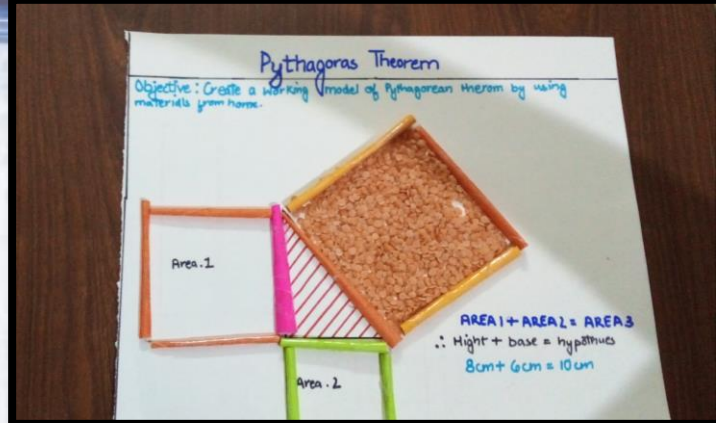 Pythagoras Theorem
Objective : Create a working model of Pythagorean therom by using
materials from home.
Area.1
AREA 1 + AREA 2 = AREA 3
∴ Hight + base = hypothues
8cm + 6cm = 10 cm
Area . 2